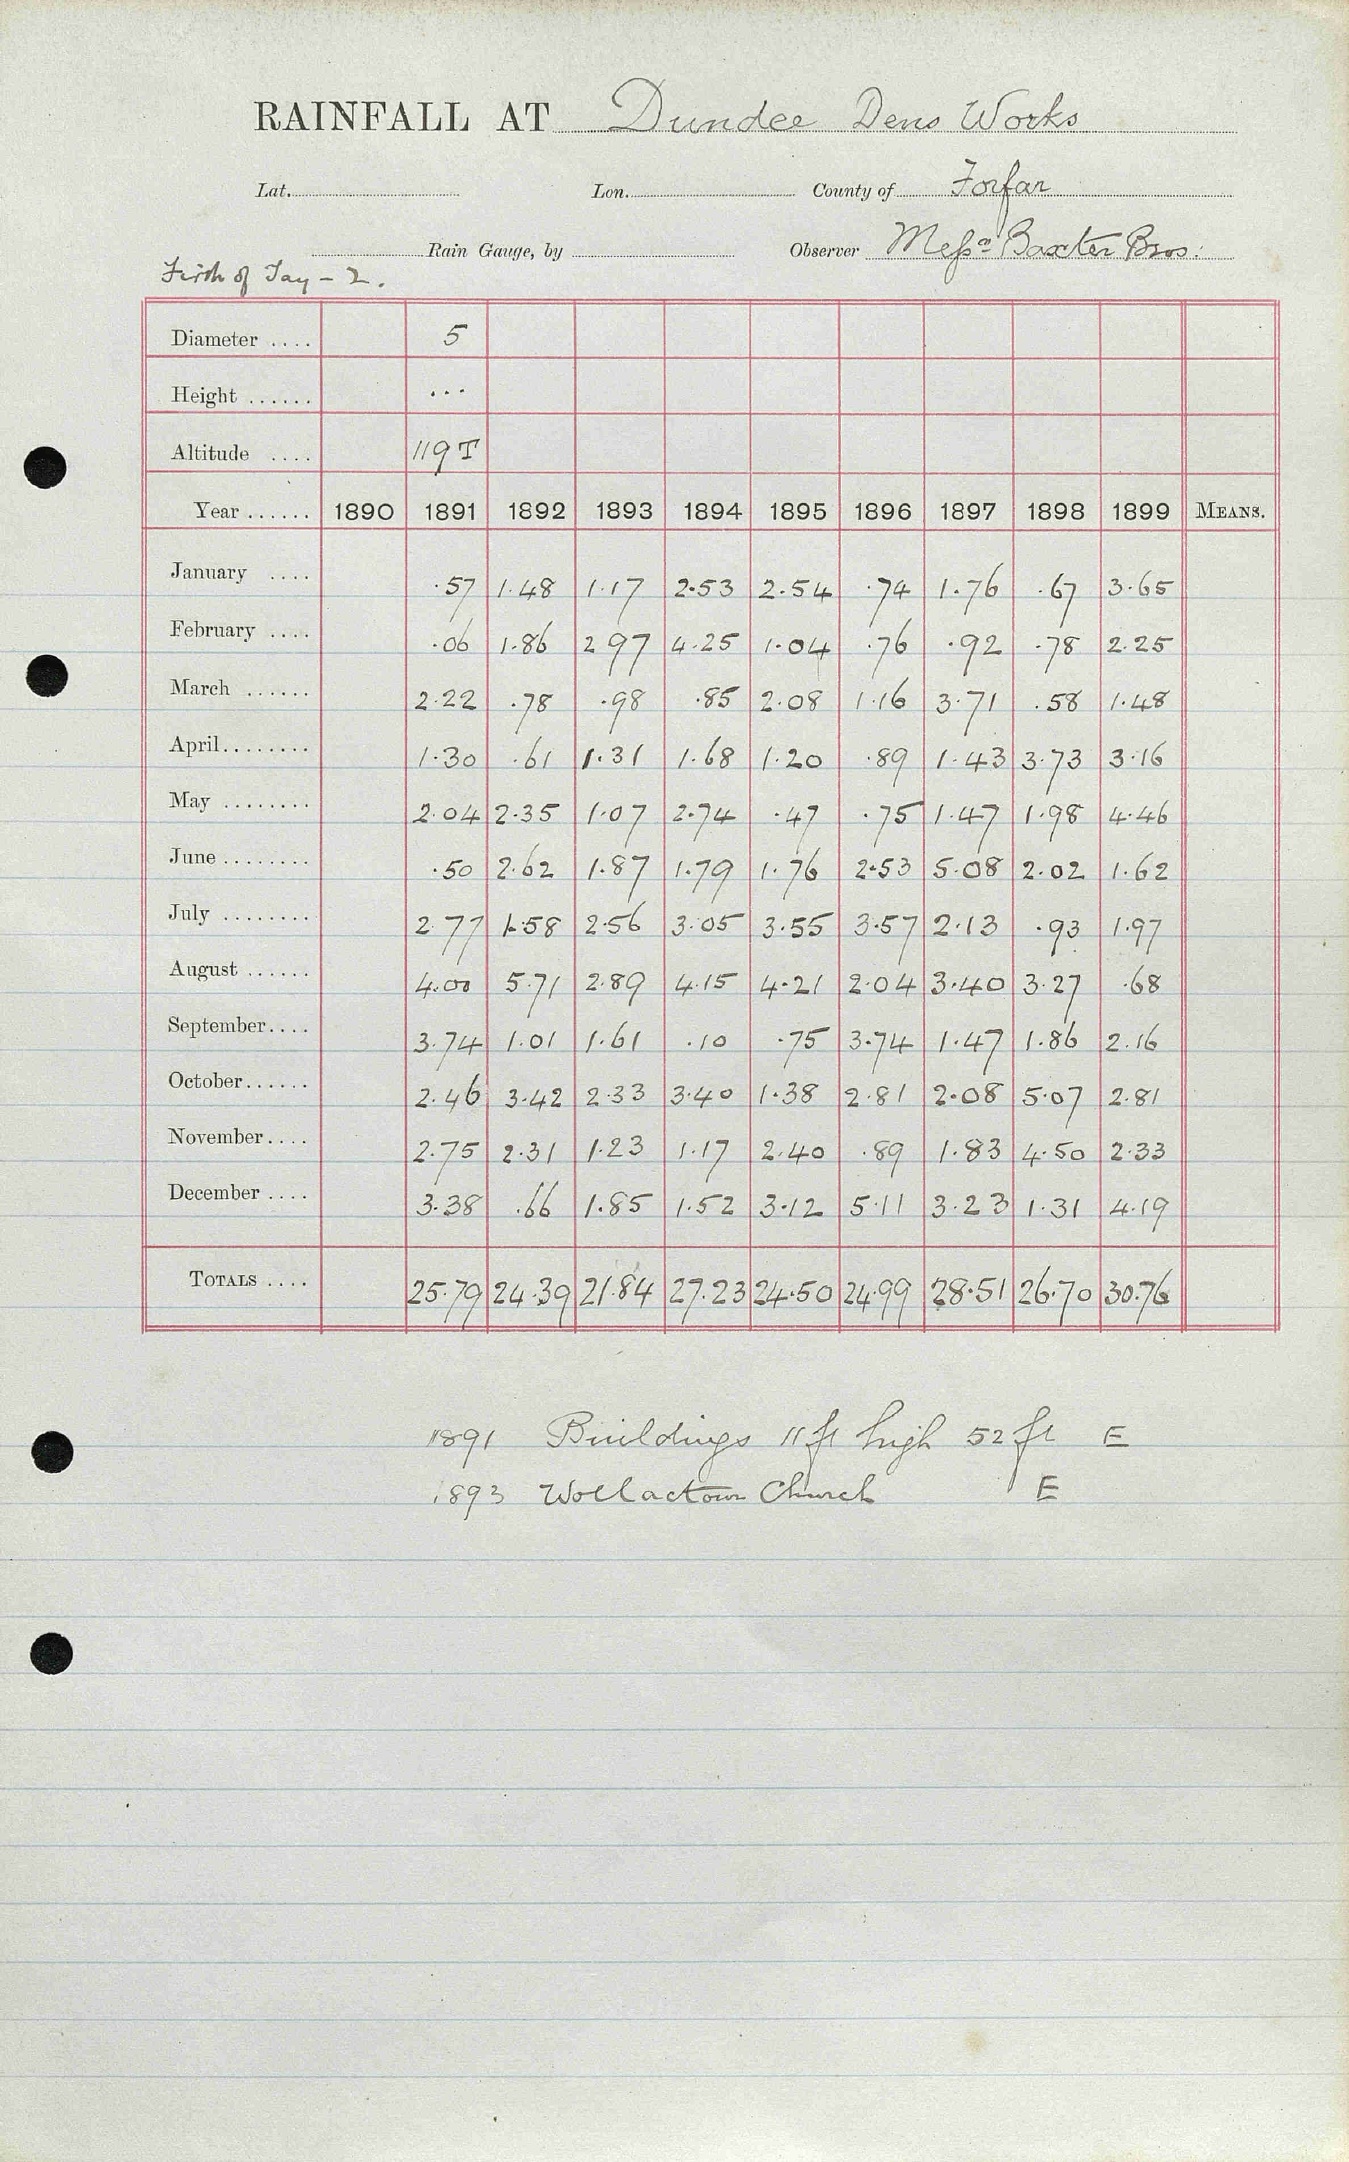 RAINFALL AT Dundee Dens Works
Lat. Lon. County of Forfar
Rain Gauge, by Observer Messrs Baxter Bros:
Firth of Tay - 2.
Diameter .... 5
Height ...... ...
Altitude .... 119 T
Year ...... 1890 1891 1892 1893 1894 1895 1896 1897 1898 1899 MEANS.
January .... .57 1.48 1.17 2.53 2.54 .74 1.76 .67 3.65
February .... .06 1.86 2 97 4.25 1.04 .76 .92 .78 2.25
March ...... 2.22 .78 .98 .85 2.08 1.16 3.71 .58 1.48
April........ 1.30 .61 1.31 1.68 1.20 .89 1.43 3.73 3.16
May ........ 2.04 2.35 1.07 2.74 .47 .75 1.47 1.98 4.46
June........ .50 2.62 1.87 1.79 1.76 2.53 5.08 2.02 1.62
July ........ 2.77 1.58 2.56 3.05 3.55 3.57 2.13 .93 1.97
August ...... 4.00 5.71 2.89 4.15 4.21 2.04 3.40 3.27 .68
September.... 3.74 1.01 1.61 .10 .75 3.74 1.47 1.86 2.16
October...... 2.46 3.42 2.33 3.40 1.38 2.81 2.08 5.07 2.81
November.... 2.75 2.31 1.23 1.17 2.40 .89 1.83 4.50 2.33
December .... 3.38 .66 1.85 1.52 3.12 5.11 3.23 1.31 4.19
TOTALS .... 25.79 24.39 21.84 27.23 24.50 24.99 28.51 26.70 30.76
1891 Buildings 11 ft high 52 ft E
1893 Church E